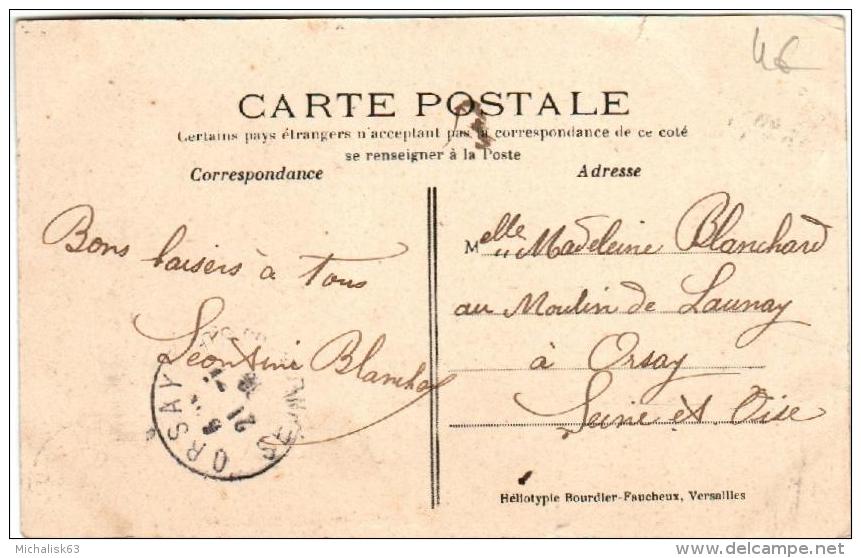 4€
CARTE POSTALE
Certains pays étrangers n'acceptant pas la correspondance de ce coté
se renseigner à la Poste
Correspondance
Adresse
Bons baisers à Tous
Leontine Blanchard
Melle Madeleine Blanchard
au Moulin de Launay
à Orsay
Seine et Oise
ORSAY
21
Héliotypie Bourdier-Faucheux, Versailles
Michalisk63
delcampe.net